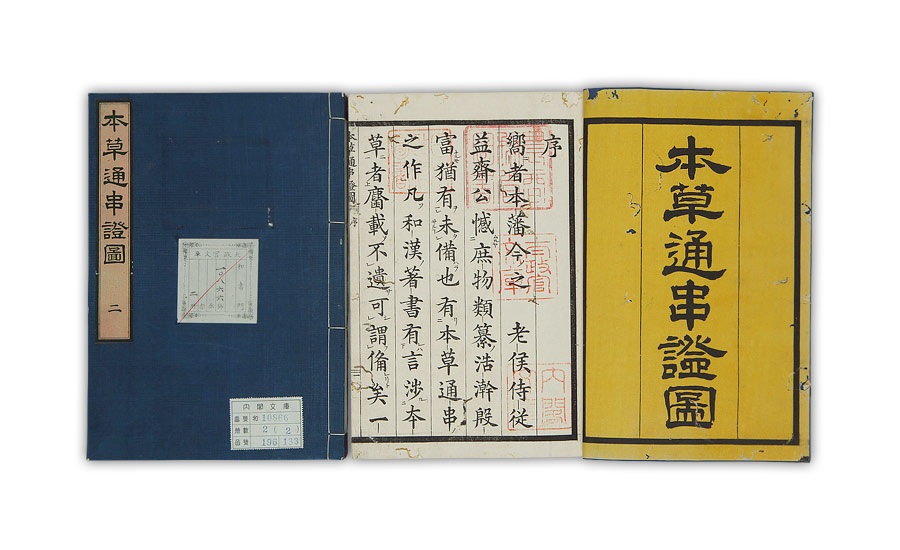 本草通串證圖
序
嚮者本藩今之　老侯侍從
益齋公憾庶物類纂浩瀚殷
富猶有未備也有本草通串
之作凡和漢著書有言涉本
草者靡載不遺可謂備矣一
本草通串證圖 序
内閣
太政官文庫
本草通串證圖
二
内閣文庫
番號 和 10866
冊數 2 (2)
函號 196 133